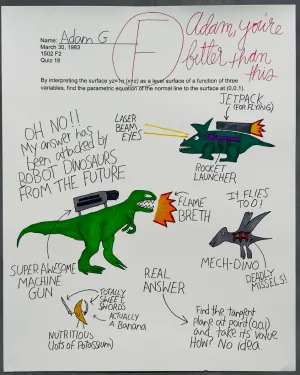 Name: Adam G
March 30, 1983
1502 F2
Quiz 18
F
Adam, you're
better than
this
By interpreting the surface yz=ln (x+z) as a level surface of a function of three
variables, find the parametric equation of the normal line to the surface at (0,0,1).
JETPACK
(FOR FLYING)
OH NO!!
My answer has
been attacked by
ROBOT DINOSAURS
FROM THE FUTURE
LASER
BEAM
EYES
ROCKET
LAUNCHER
FLAME
BRETH
IT FLIES
TOO!
SUPER AWESOME
MACHINE
GUN
MECH-DINO
DEADLY
MISSELS!
REAL
ANSWER
TOTALLY
SWEET
SWORDS
ACTUALLY
A Banana
NUTRITIOUS
(lots of Potassium)
Find the tangent
plane at point (0,0,1)
and take its value
How? No idea.